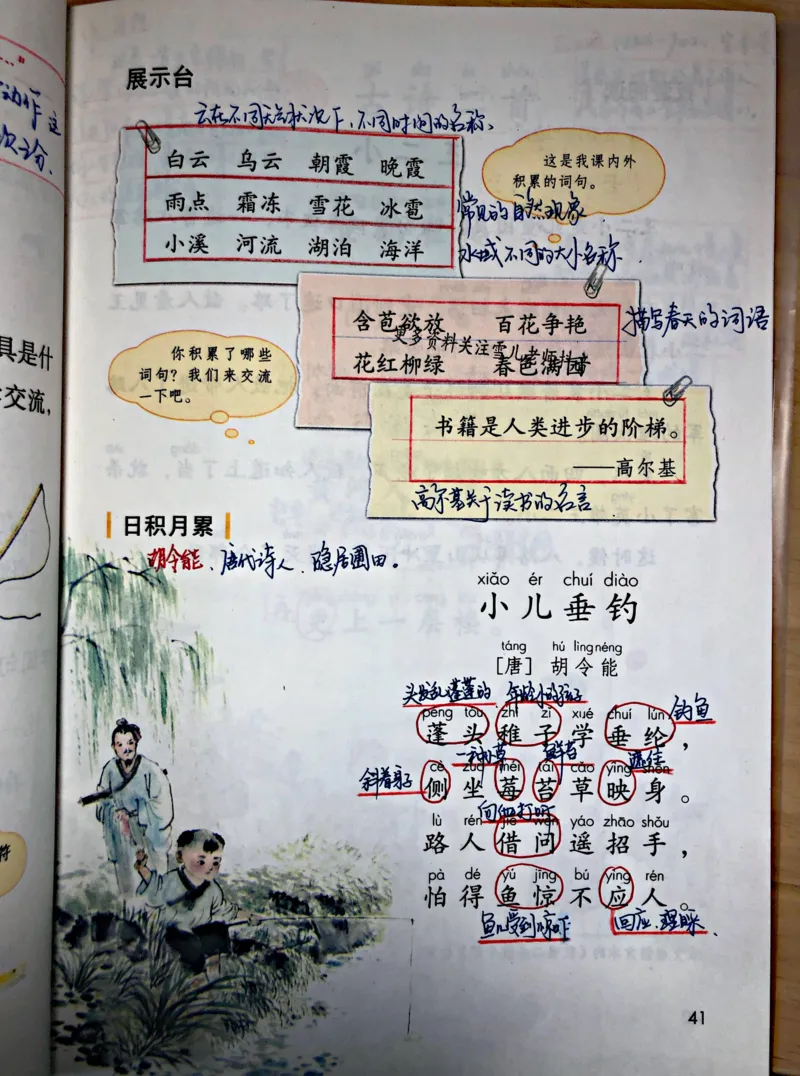 动作 这
次之分、
具是什
交流,
展示台
云在不同天气状况下,不同时间的名称、
白云 乌云 朝霞 晚霞
雨点 霜冻 雪花 冰雹
小溪 河流 湖泊 海洋
这是我课内外
积累的词句。
常见的自然现象
水域不同的大小名称
含苞欲放 百花争艳
花红柳绿 春色满园
更多资料关注雪儿老师抖音
描写春天的词语
你积累了哪些
词句?我们来交流
一下吧。
书籍是人类进步的阶梯。
——高尔基
高尔基关于读书的名言
日积月累
胡令能、唐代诗人、隐居圃田。
xiǎo ér chuí diào
小儿垂钓
táng hú lìng néng
[唐] 胡令能
头发乱蓬蓬的 年龄小的孩子
钓鱼
péng tóu zhì zǐ xué chuí lún
蓬头稚子学垂纶,
一种野草
遮住
斜着身子
cè zuò méi tái cǎo yìng shēn
侧坐莓苔草映身。
向他打听
lù rén jiè wèn yáo zhāo shǒu
路人借问遥招手,
pà dé yú jīng bú yìng rén
怕得鱼惊不应人。
鱼儿受到惊吓
回应、理睬、
41